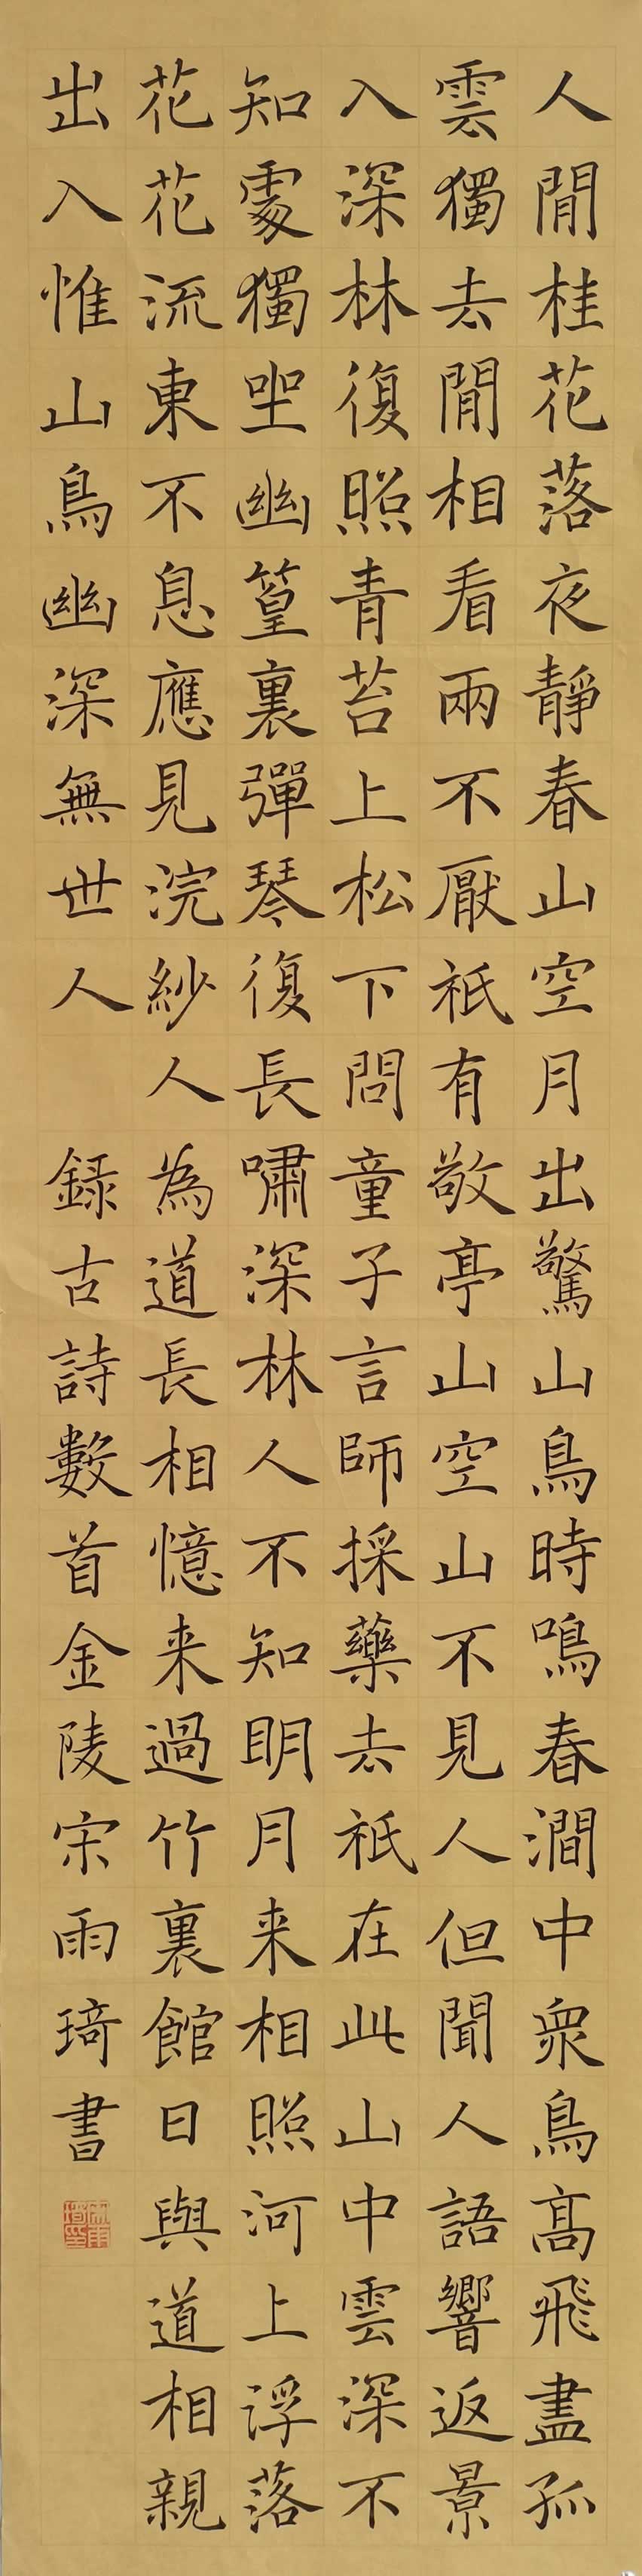 人閒桂花落夜靜春山空月出驚山鳥時鳴春澗中衆鳥高飛盡孤
雲獨去閒相看兩不厭祇有敬亭山空山不見人但聞人語響返景
入深林復照青苔上松下問童子言師採藥去祇在此山中雲深不
知處獨坐幽篁裏彈琴復長嘯深林人不知明月来相照河上浮落
花花流東不息應見浣紗人為道長相憶来過竹裏館日與道相親
出入惟山鳥幽深無世人 錄古詩數首金陵宋雨琦書
宋雨琦印